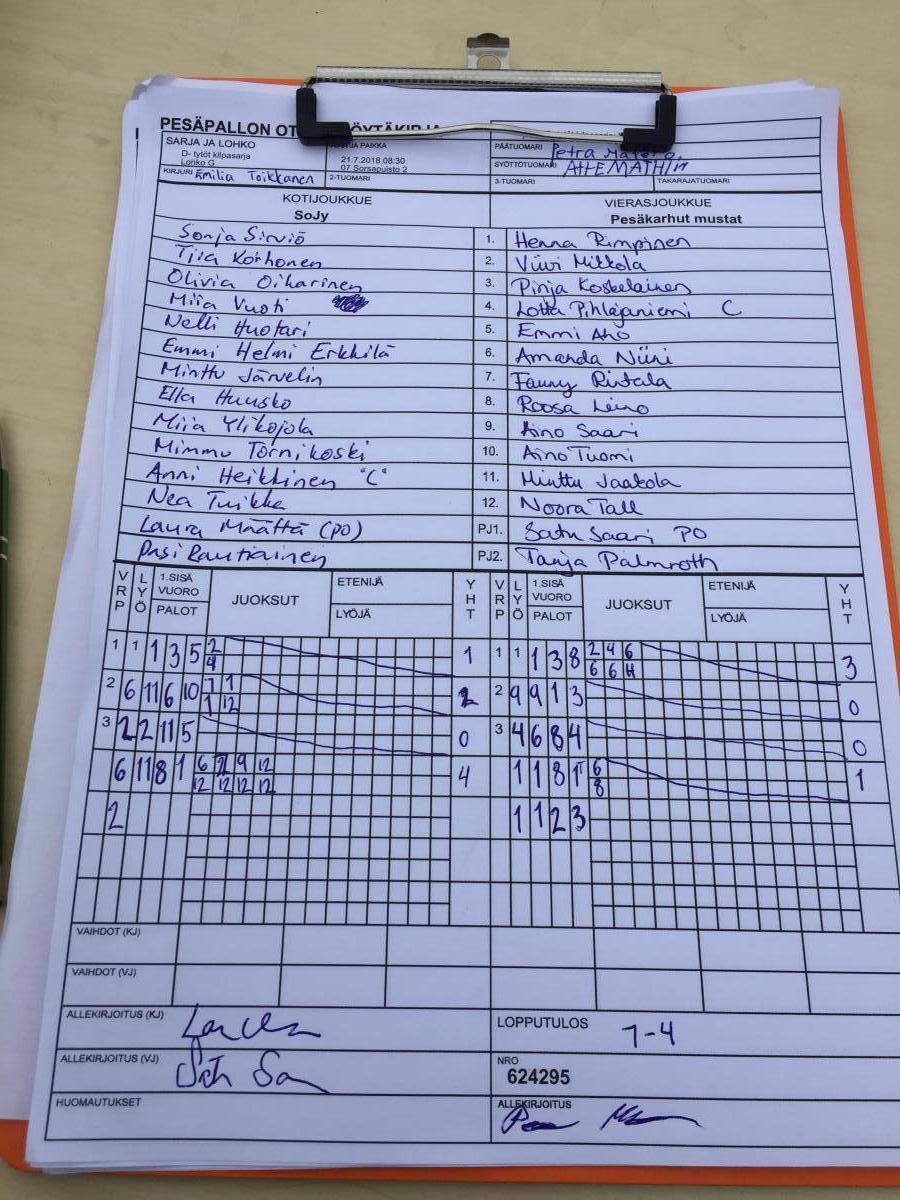 PESÄPALLON OT
SARJA JA LOHKO
D- tytöt kilpasarja
Lohko G
21.7.2018 08:30
07 Sorsapuisto 2
KIRJURI Emilia Toikkanen
2-TUOMARI
PÄÄTUOMARI Petra
SYÖTTÖTUOMARI
3-TUOMARI
TAKARAJATUOMARI
KOTIJOUKKUE
SoJy
VIERASJOUKKUE
Pesäkarhut mustat
Sonja Sirviö 1. Henna Rimpinen
Tiia Korhonen 2. Viivi Mikkola
Olivia Oikarinen 3. Pinja Koskelainen
Miia Vuoti 4. Lotta Pihlajaniemi C
Nelli Huotari 5. Emmi Aho
Emmi Helmi Erkkilä 6. Amanda Niini
Minttu Järvelin 7. Fanny Rintala
Ella Huusko 8. Roosa Leino
Miia Ylikojola 9. Aino Saari
Mimmu Törnikoski 10. Aino Tuomi
Anni Heikkinen "C" 11. Minttu Jaakola
Nea Tuikka 12. Noora Tall
Laura Määttä (PO) PJ1. Satu Saari PO
Pasi Rautiainen PJ2. Tanja Palmroth
VRP LYÖ 1.SISÄ VUORO PALOT JUOKSUT ETENIJÄ LYÖJÄ YHT VRP LYÖ 1.SISÄ VUORO PALOT JUOKSUT ETENIJÄ LYÖJÄ YHT
1 1 1 3 5 2 1 1 1 1 3 8 2 4 6 3
4 6 6 4
2 6 11 6 10 7 1 2 2 9 9 1 3 0
1 12
3 2 2 11 5 0 3 4 6 8 4 0
6 11 8 1 6 9 12 4 1 1 8 1 6 1
12 12 12 12 8
2 1 1 2 3
VAIHDOT (KJ)
VAIHDOT (VJ)
ALLEKIRJOITUS (KJ)
LOPPUTULOS 7-4
ALLEKIRJOITUS (VJ)
NRO
624295
HUOMAUTUKSET
ALLEKIRJOITUS